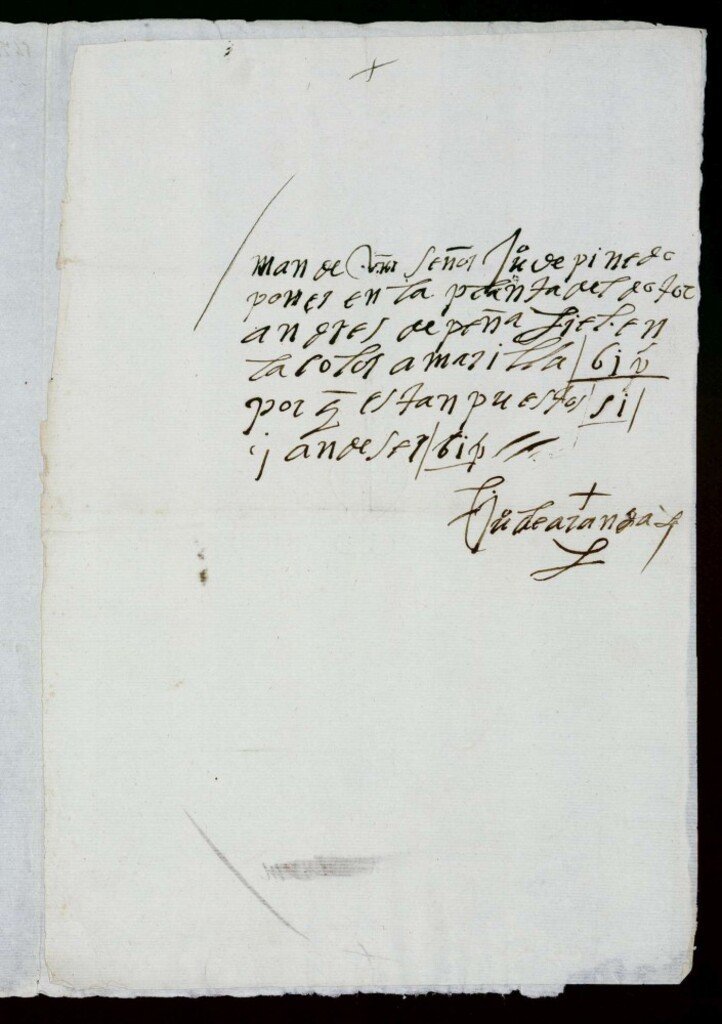 +
mande vm̄ señor Juº de pinedo
poner en la planta del dotor
andres de peña fiel. en
la color amarilla / bj
por q̄ estan puestos / si /
y an de ser /
Juº de aranda